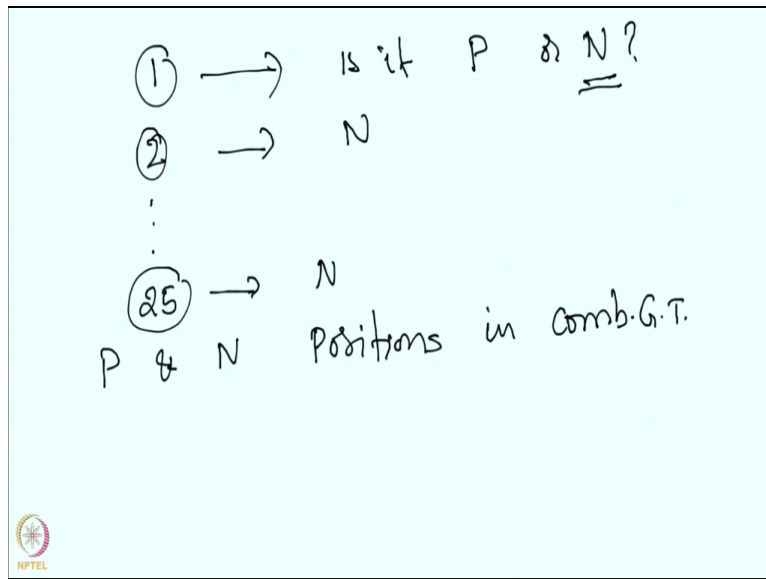 1 → Is it P or N?
2 → N
⋮
25 → N
P & N Positions in Comb. G. T.
NPTEL